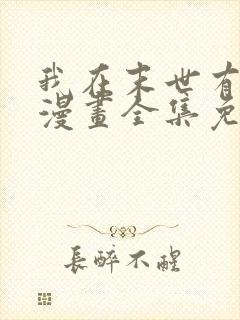 我在末世有
漫畫全集免
長醉不醒